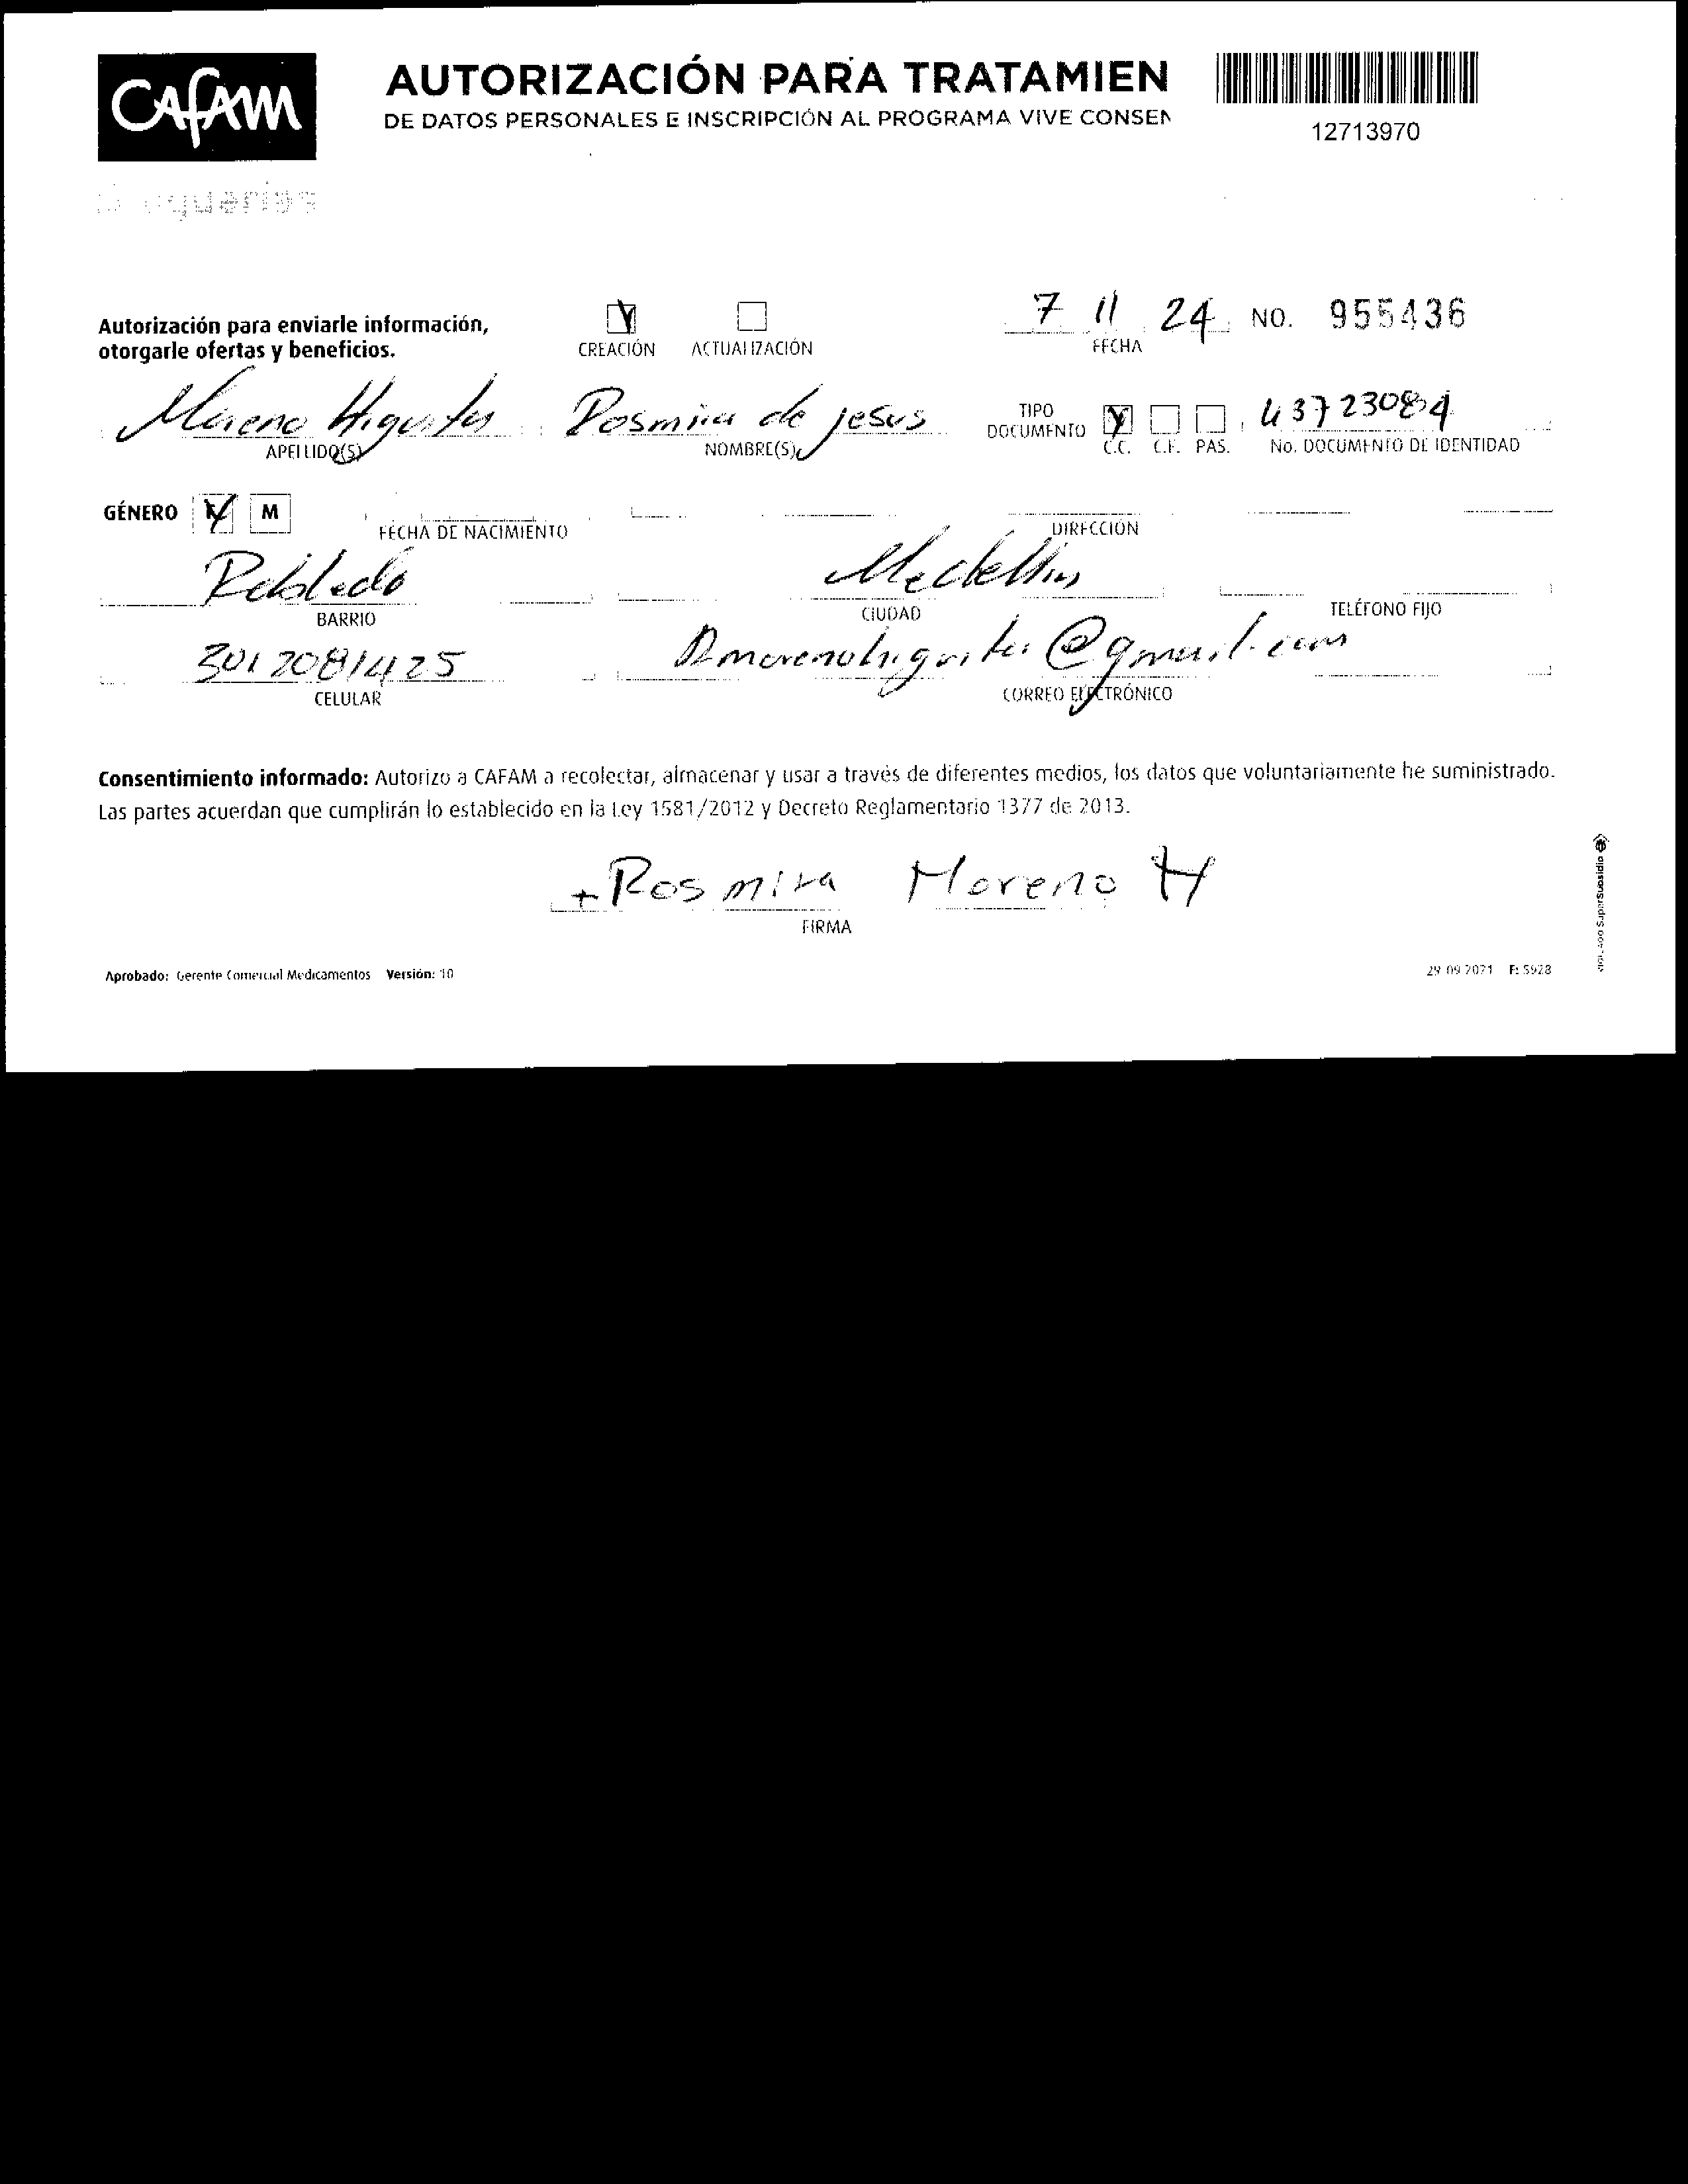 CAFAM
AUTORIZACIÓN PARA TRATAMIEN
DE DATOS PERSONALES E INSCRIPCIÓN AL PROGRAMA VIVE CONSEN
12713970
Autorización para enviarle información,
otorgarle ofertas y beneficios.
CREACIÓN ACTUALIZACIÓN
7 11 24 NO. 955436
FECHA
Moreno Higuita Rosmira de jesus
APELLIDO(S) NOMBRE(S)
TIPO DOCUMENTO C.C. C.E. PAS. 43723084
No. DOCUMENTO DE IDENTIDAD
GÉNERO F M
FECHA DE NACIMIENTO DIRECCIÓN
Robledo Medellin
BARRIO CIUDAD TELÉFONO FIJO
3012081425 Rmorenohiguita@gmail.com
CELULAR CORREO ELECTRÓNICO
Consentimiento informado: Autorizo a CAFAM a recolectar, almacenar y usar a través de diferentes medios, los datos que voluntariamente he suministrado.
Las partes acuerdan que cumplirán lo establecido en la Ley 1581/2012 y Decreto Reglamentario 1377 de 2013.
+ Rosmira Moreno H
FIRMA
Aprobado: Gerente Comercial Medicamentos Versión: 10
29 09 2021 F: 5928
SuperSubsidio